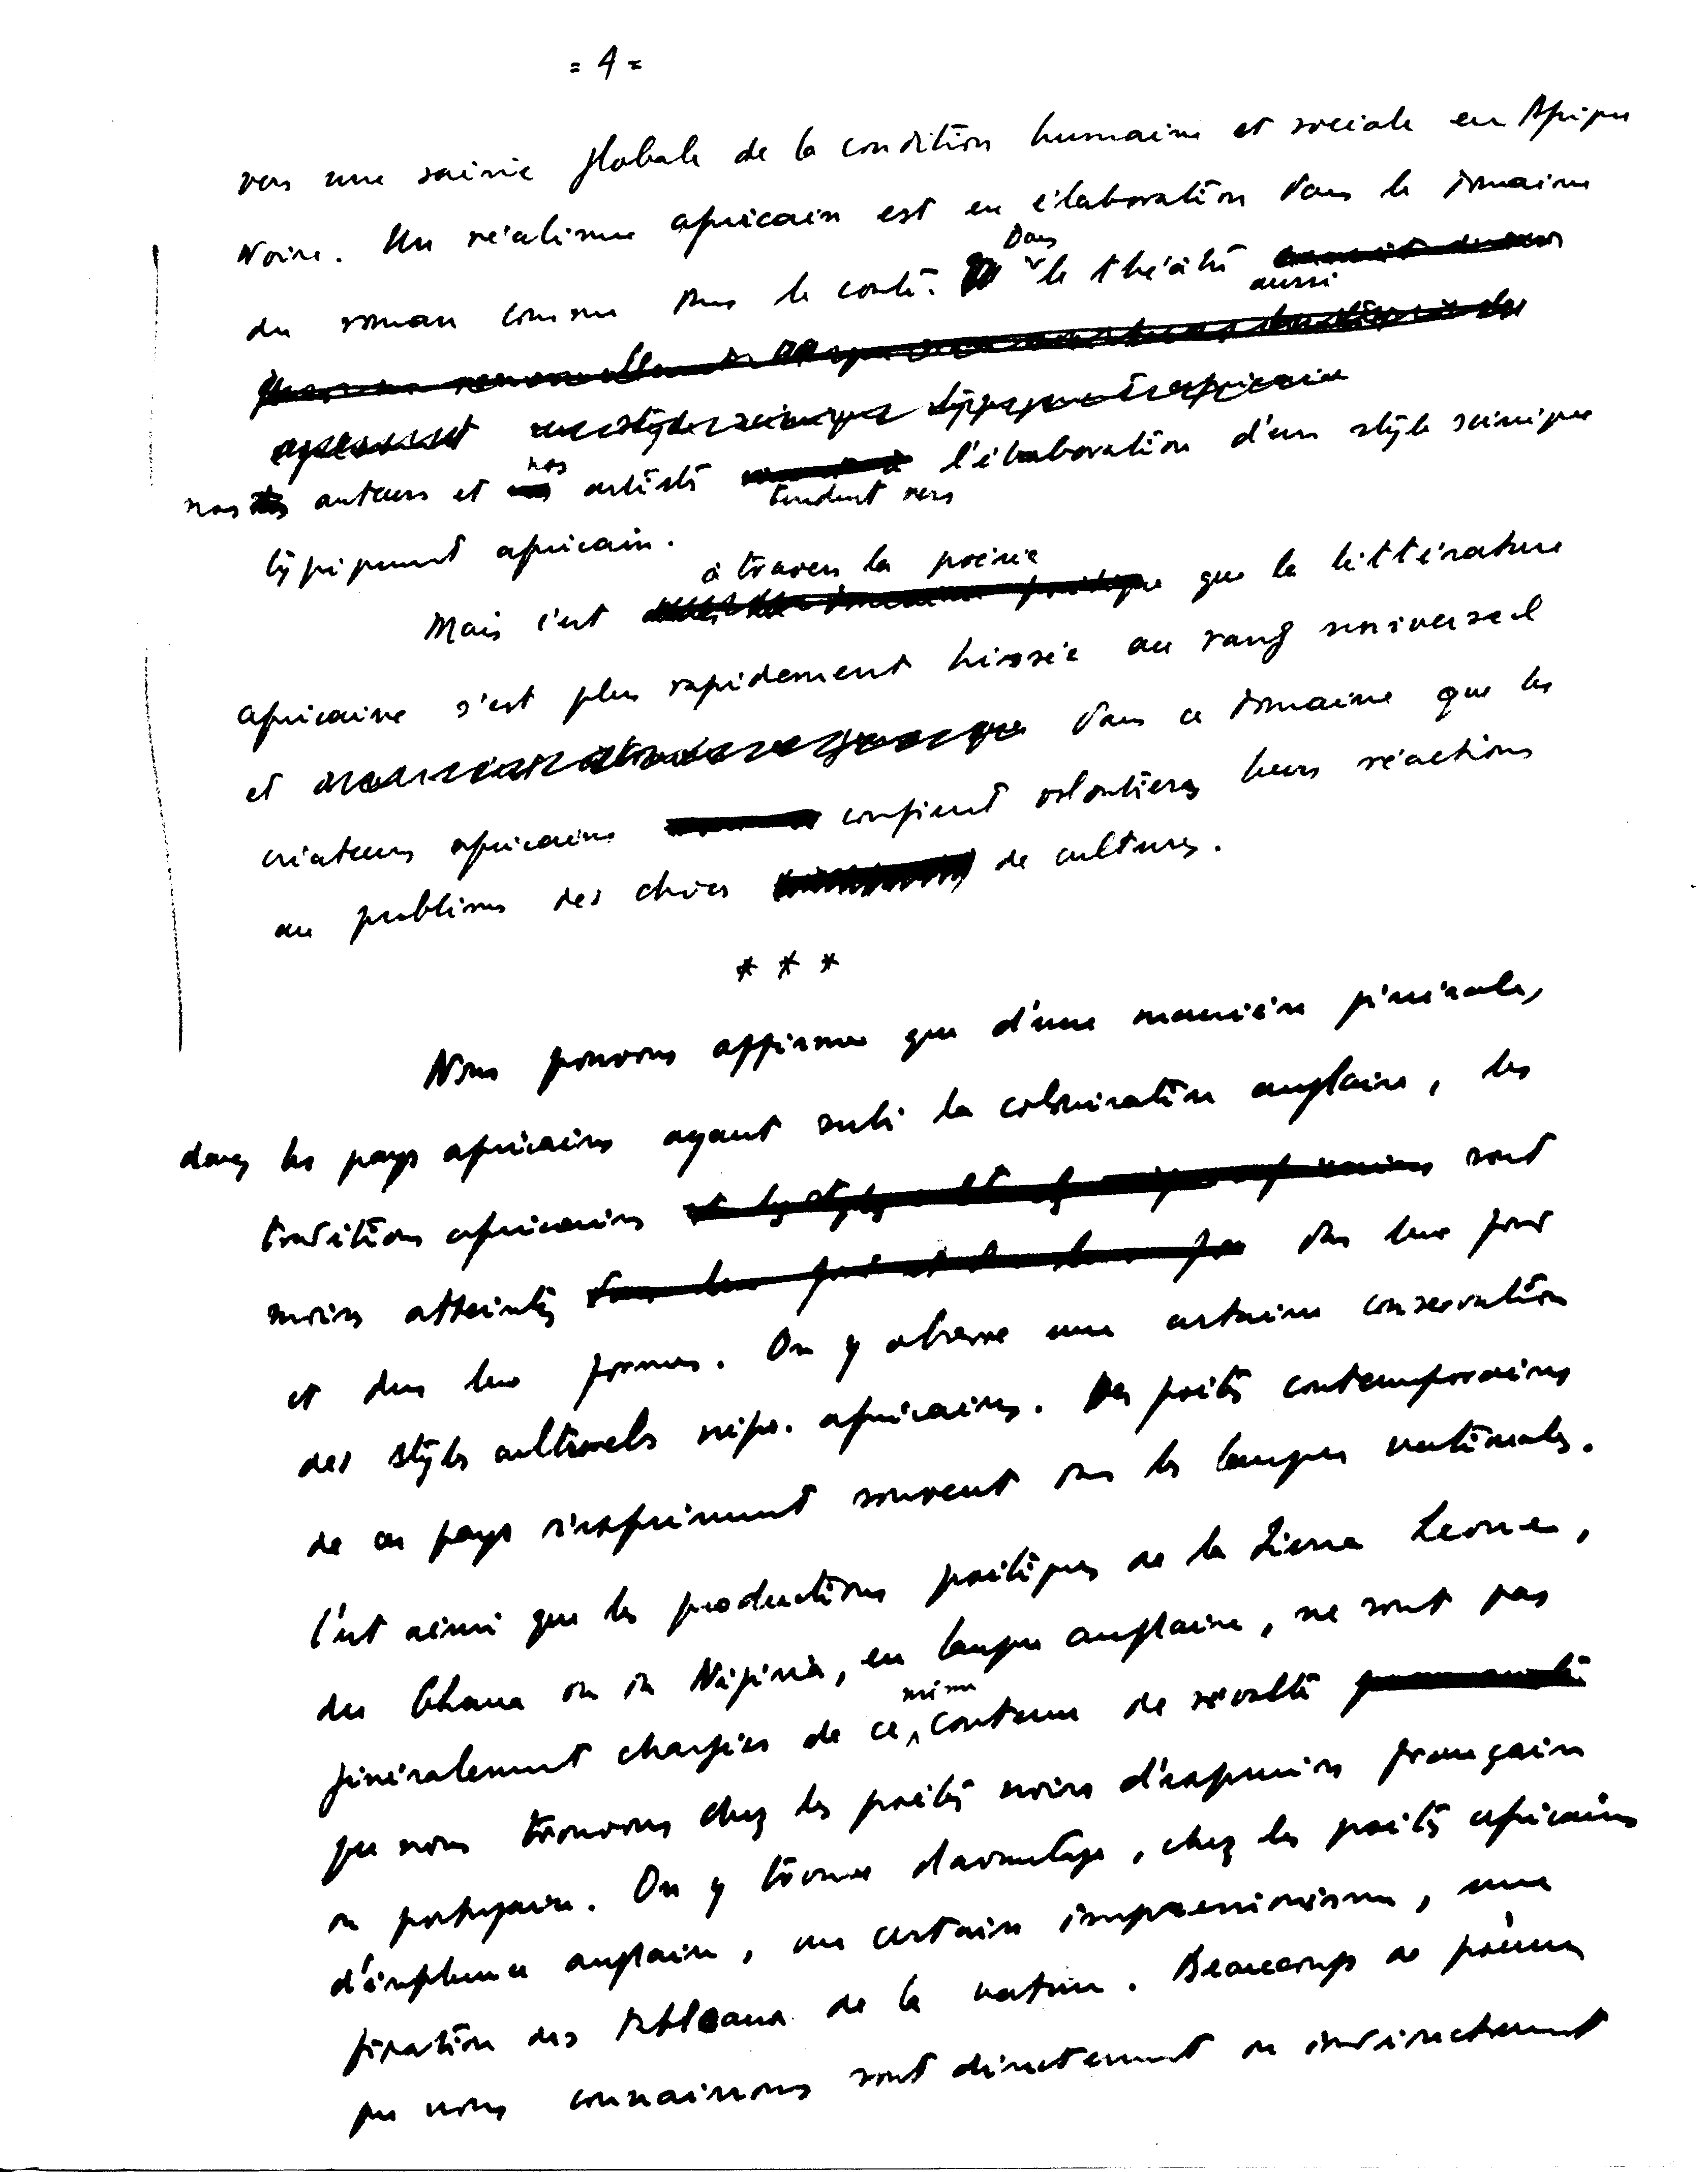 = 4 =
vers une saisie globale de la condition humaine et sociale en Afrique
Noire. Un réalisme africain est en élaboration dans le domaine
du roman comme dans le conte. Dans le théâtre aussi
nos auteurs et nos artistes tendent vers l'élaboration d'un style scénique
typiquement africain.
Mais c'est à travers la poésie que la littérature
africaine s'est plus rapidement hissée au rang universel
et dans ce domaine que les
créateurs africains confient volontiers leurs réactions
au problème des chocs de cultures.
* * *
Nous pouvons affirmer que d'une manière générale,
dans les pays africains ayant subi la colonisation anglaise, les
traditions africaines sont
moins atteintes dans leur fond
et dans leur formes. On y observe une certaine conservation
des styles culturels négro-africains. Des poètes contemporains
de ces pays s'expriment souvent dans les langues nationales.
C'est ainsi que les productions poétiques de la Sierra Leone,
du Ghana ou du Nigéria, en langue anglaise, ne sont pas
généralement chargées de ce même contenu de révolte
que nous trouvons chez les poètes noirs d'expression française
ou portugaise. On y trouve davantage, chez les poètes africains
d'influence anglaise, un certain impressionnisme, une
fixation des tableaux de la nature. Beaucoup de poèmes
que nous connaissons sont directement ou indirectement